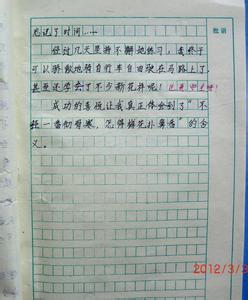 批语
忘记了时间……
经过几天坚持不懈地练习，我终于
可以骄傲地骑自行车自由驶在马路上了，
甚至还学会了不少新花样呢！
成功的喜悦让我真正体会到了“不
经一番彻骨寒，怎得梅花扑鼻香”的含
义。
2012/3/3